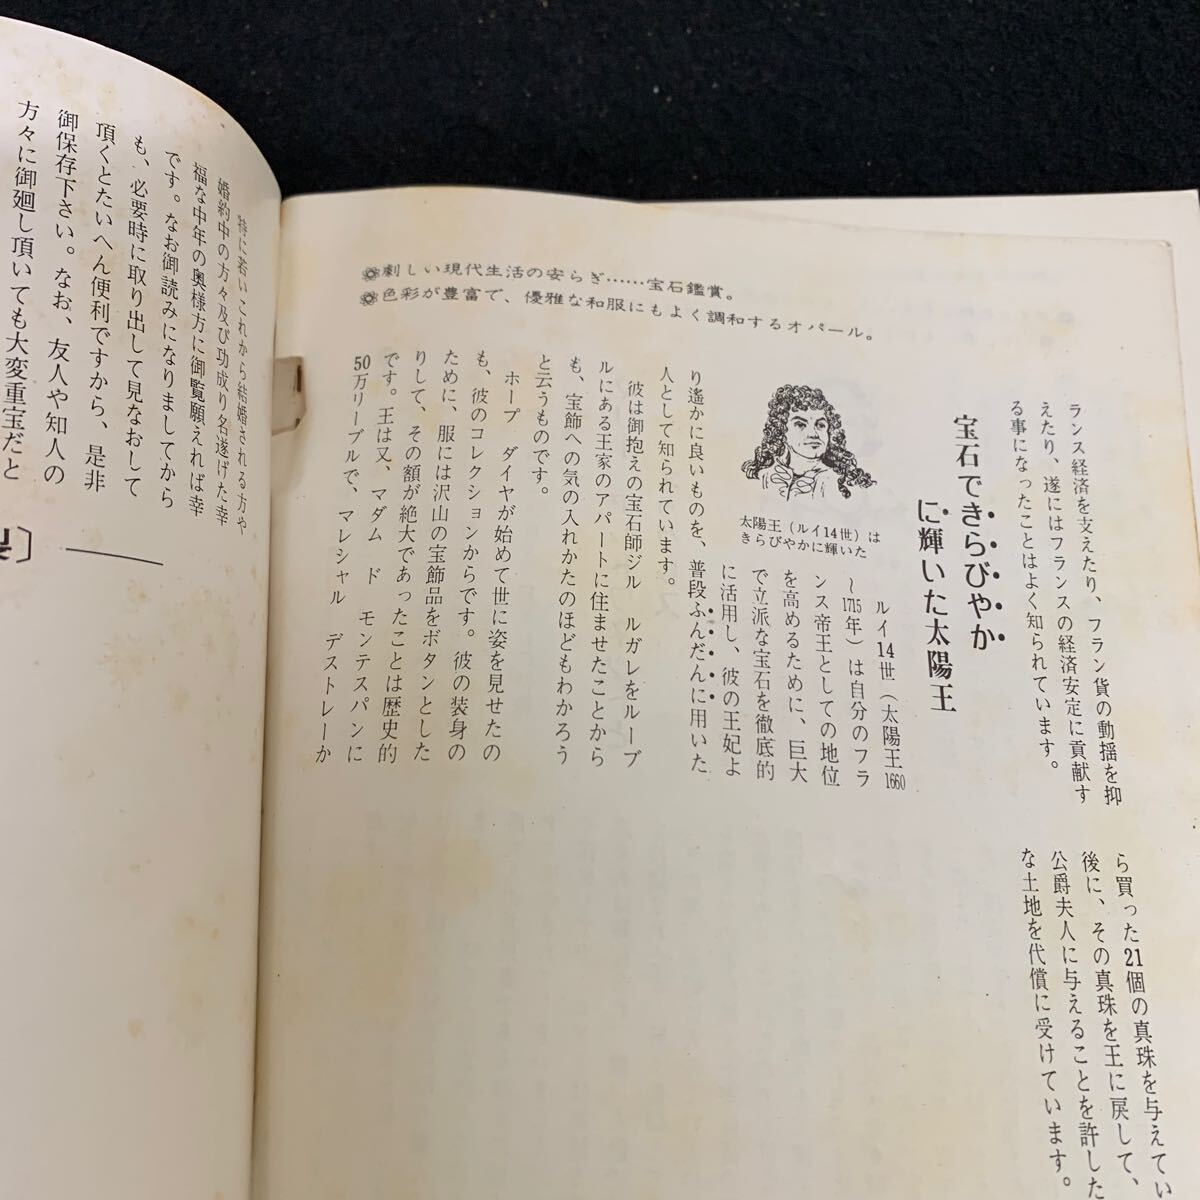 劇しい現代生活の安らぎ……宝石鑑賞。
色彩が豊富で、優雅な和服にもよく調和するオパール。
ランス経済を支えたり、フラン貨の動揺を抑
えたり、遂にはフランスの経済安定に貢献す
る事になったことはよく知られています。
宝石できらびやか
に輝いた太陽王
太陽王（ルイ14世）は
きらびやかに輝いた
ルイ14世（太陽王1660
〜1715年）は自分のフラ
ンス帝王としての地位
を高めるために、巨大
で立派な宝石を徹底的
に活用し、彼の王妃よ
り遙かに良いものを、普段ふんだんに用いた
人として知られています。
彼は御抱えの宝石師ジル　ルガレをルーブ
ルにある王家のアパートに住ませたことから
も、宝飾への気の入れかたのほどもわかろう
と云うものです。
ホープ　ダイヤが始めて世に姿を見せたの
も、彼のコレクションからです。彼の装身の
ために、服には沢山の宝飾品をボタンとした
りして、その額が絶大であったことは歴史的
です。王は又、マダム　ド　モンテスパンに
50万リーブルで、マレシャル　デストレーか
ら買った21個の真珠を与えてい
後に、その真珠を王に戻して、
公爵夫人に与えることを許した
な土地を代償に受けています。
特に若いこれから結婚される方や
婚約中の方々及び功成り名遂げた幸
福な中年の奥様方に御覧願えれば幸
です。なお御読みになりましてから
も、必要時に取り出して見なおして
頂くとたいへん便利ですから、是非
御保存下さい。なお、友人や知人の
方々に御廻し頂いても大変重宝だと